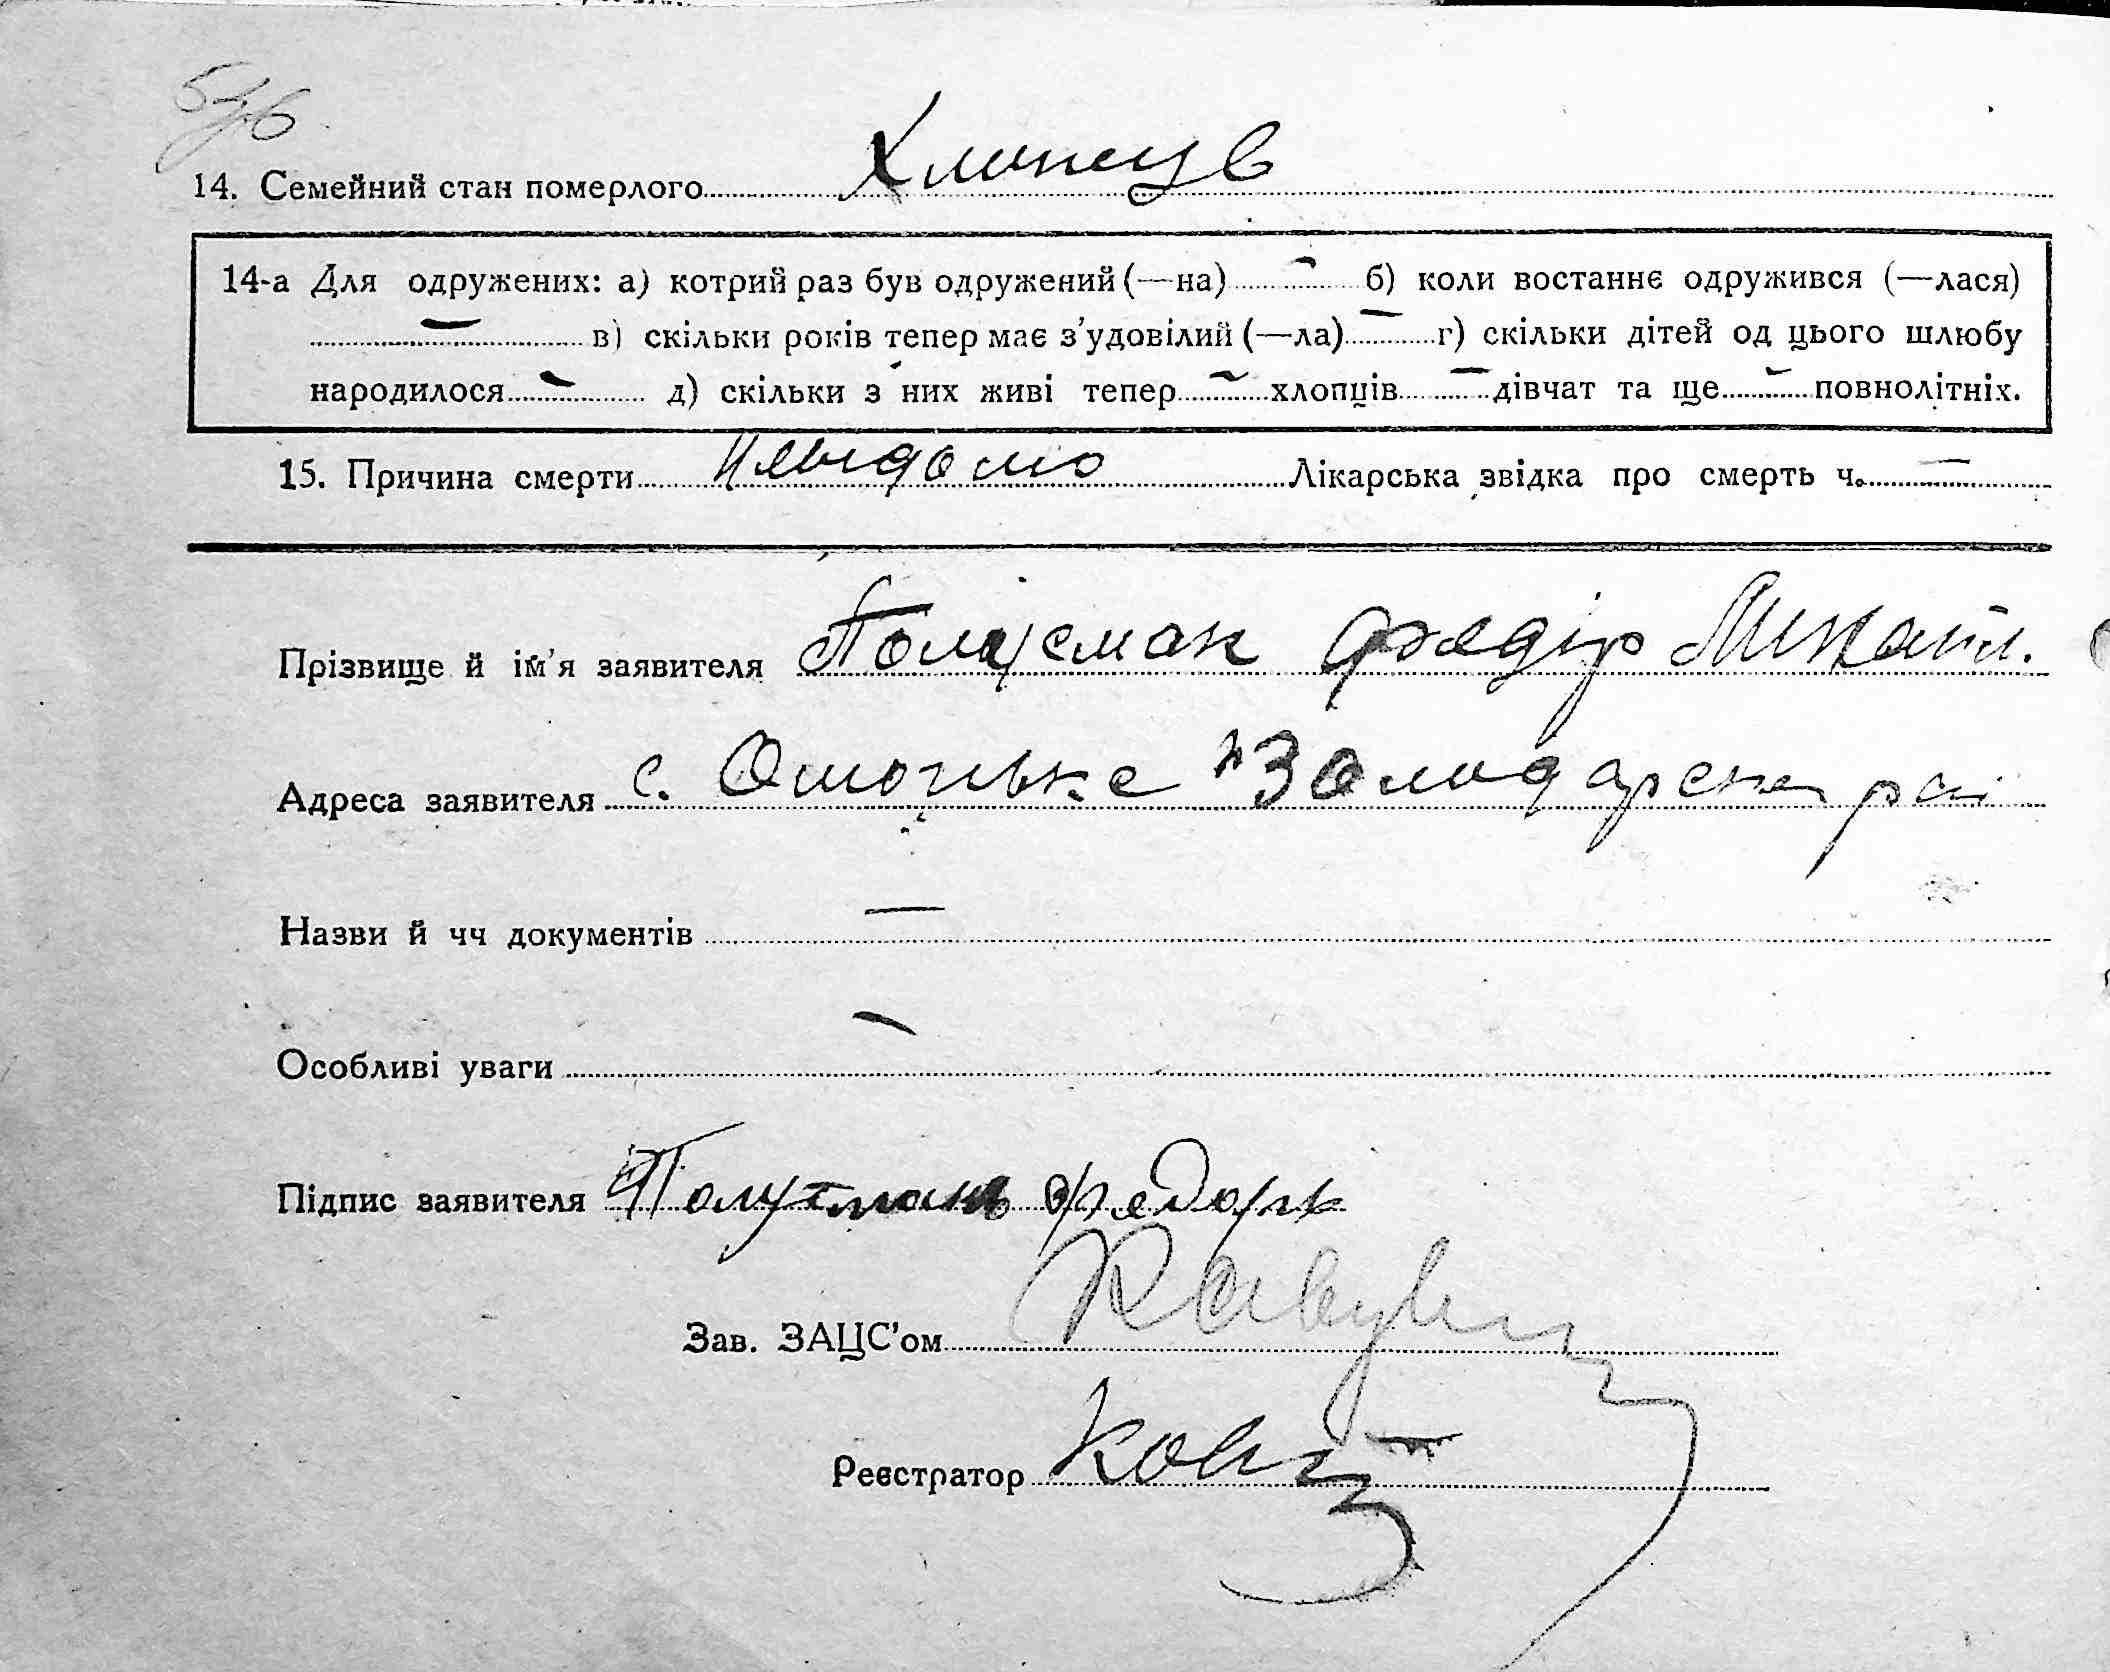 546
14. Семейний стан померлого Хлипець
14-а Для одружених: а) котрий раз був одружений (—на) — б) коли востаннє одружився (—лася)
— в) скільки років тепер має з'удовілий (—ла) — г) скільки дітей од цього шлюбу
народилося — д) скільки з них живі тепер — хлопців — дівчат та ще — повнолітніх.
15. Причина смерти Невідомо Лікарська звідка про смерть ч. —
Прізвище й ім'я заявителя Полусмак Федір Михайл.
Адреса заявителя с. Золодарськ рай
Назви й чч документів —
Особливі уваги —
Підпис заявителя Полусмакь
Зав. ЗАЦС'ом
Реєстратор